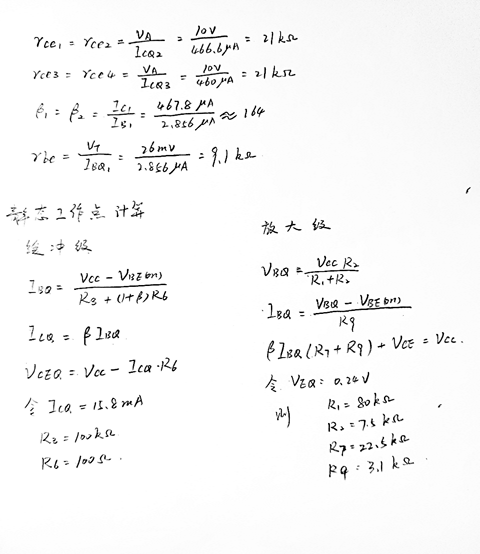 rce1 = rce2 = VA/ICQ2 = 10V/466.6μA = 21kΩ
rce3 = rce4 = VA/ICQ3 = 10V/460μA = 21kΩ
β1 = β2 = IC1/IB1 = 467.8μA/2.856μA ≈ 164
rbe = VT/IBQ1 = 26mV/2.856μA = 9.1kΩ
静态工作点计算
缓冲级
IBQ = (VCC - VBE(on))/(R3 + (1+β)R6)
ICQ = βIBQ
VCEQ = VCC - ICQ·R6
令 ICQ = 15.8mA
R3 = 100kΩ
R6 = 100Ω.
放大级
VBQ = VCC R2/(R1+R2)
IBQ = (VBQ - VBE(on))/R9
βIBQ(R7+R9) + VCE = VCC.
令 VEQ = 0.24V
则 R1 = 80kΩ
R2 = 7.5kΩ
R7 = 22.5kΩ
R9 = 3.1kΩ